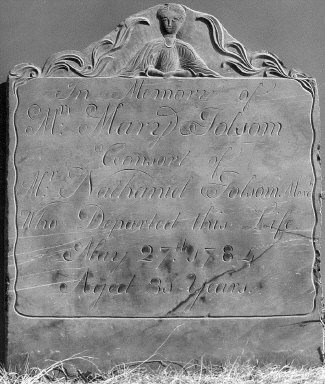 In Memory of
Mrs Mary Folsom
Consort of
Mr Nathaniel Folsom
Who Departed this Life
May 27th 1784
Aged 38 Years.